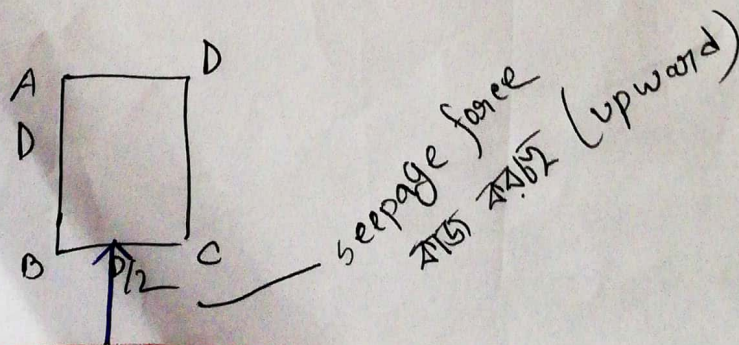 A D
D
B D/2 C
seepage force
কাজ করছে (upward)